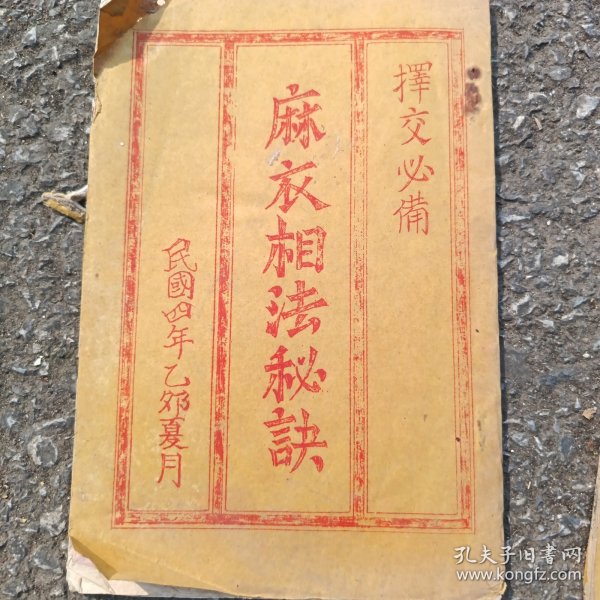 擇交必備
麻衣相法秘訣
民國四年乙夘夏月
孔夫子旧书网
www.kongfz.com